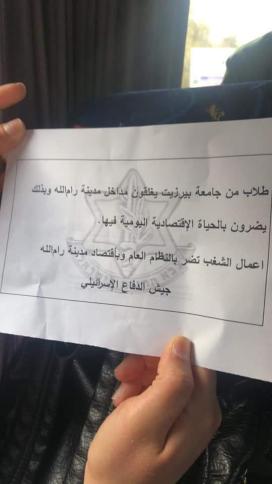 طلاب من جامعة بيرزيت يغلقون مداخل مدينة رام الله وبذلك
يضرون بالحياة الإقتصادية اليومية فيها.
اعمال الشغب تضر بالنظام العام وبأقتصاد مدينة رام الله
جيش الدفاع الإسرائيلي